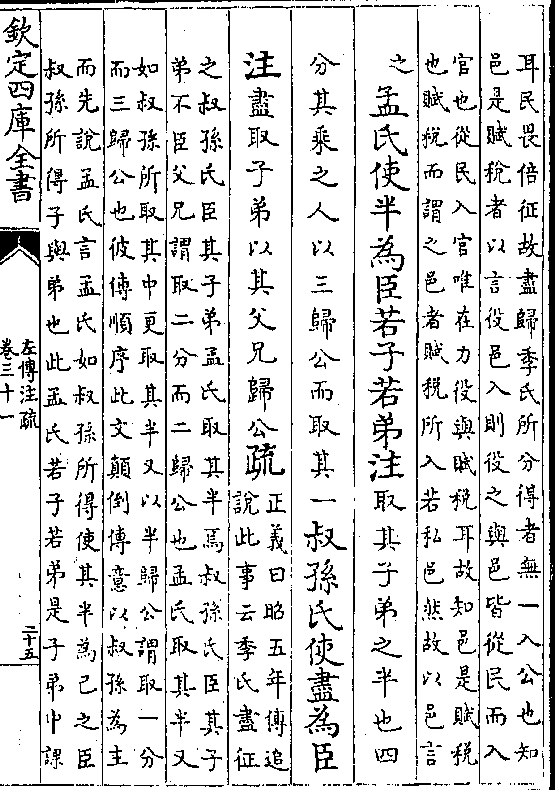 耳民畏倍征故盡歸季氏所分得者無一入公也知
邑是賦稅者以言役邑入則役之與邑皆從民而入
官也從民入官唯在力役與賦稅耳故知邑是賦稅
也賦稅而謂之邑者賦稅所入若私邑然故以邑言
之孟氏使半為臣若子若弟注取其子弟之半也四
分其乘之人以三歸公而取其一叔孫氏使盡為臣
注盡取子弟以其父兄歸公疏正義曰昭五年傳追
說此事云季氏盡征
之叔孫氏臣其子弟孟氏取其半焉叔孫氏臣其子
弟不臣父兄謂取二分而二歸公也孟氏取其半又
如叔孫所取其中更取其半又以半歸公謂取一分
而三歸公也彼傳順序此文顛倒傳意以叔孫為主
而先說孟氏言孟氏如叔孫所得使其半為己之臣
叔孫所得子與弟也此孟氏若子若弟是子弟中課
欽定四庫全書
左傳注疏
卷三十一
二十五